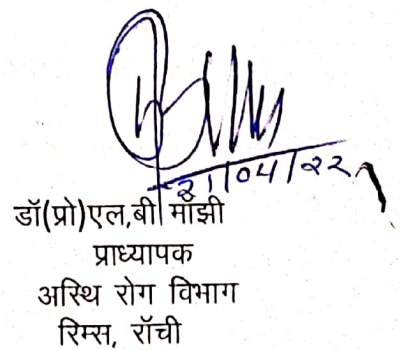 21/04/22
डॉ(प्रो)एल,बी माँझी
प्राध्यापक
अस्थि रोग विभाग
रिम्स, राँची